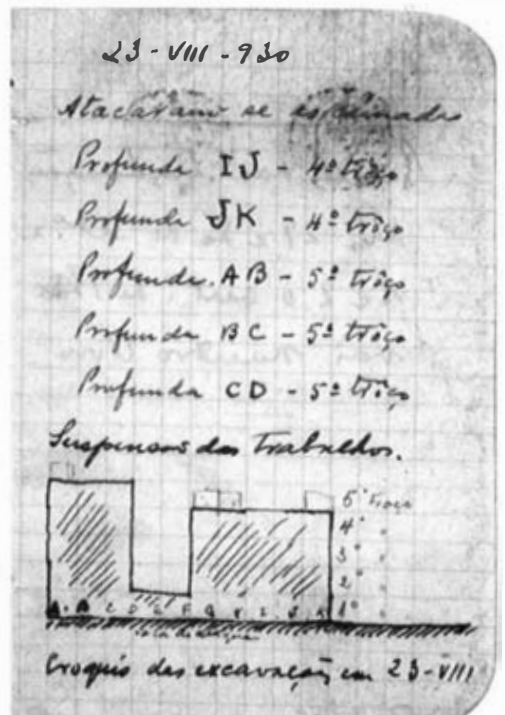 23-VIII-930
Atacaram se as camadas
Profunda IJ - 4º trôço
Profunda JK - 4º trôço
Profunda AB - 5º trôço
Profunda BC - 5º trôço
Profunda CD - 5º trôço
Suspensão dos trabalhos.
5º trôço
4º "
3º "
2º "
1º "
A B C D E F G H I J K
Croquis das excavações em 23-VIII